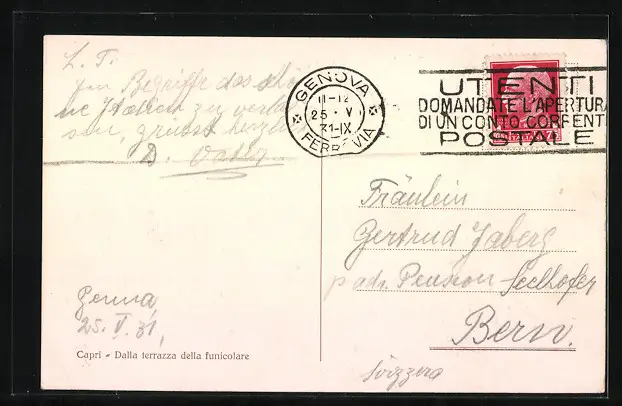 L. T.
Im Begriffe das schö-
ne Italien zu verlas-
sen, grüsst herzlich
D.
GENOVA
11-12
25 · V
31-IX
FERROVIA
UTENTI
DOMANDATE L'APERTURA
DI UN CONTO CORRENTE
POSTALE
Fräulein
Gertrud Jaberg
p. adr. Pension Seelhofer
Bern.
Svizzera
Genua,
25. V. 31.
Capri - Dalla terrazza della funicolare